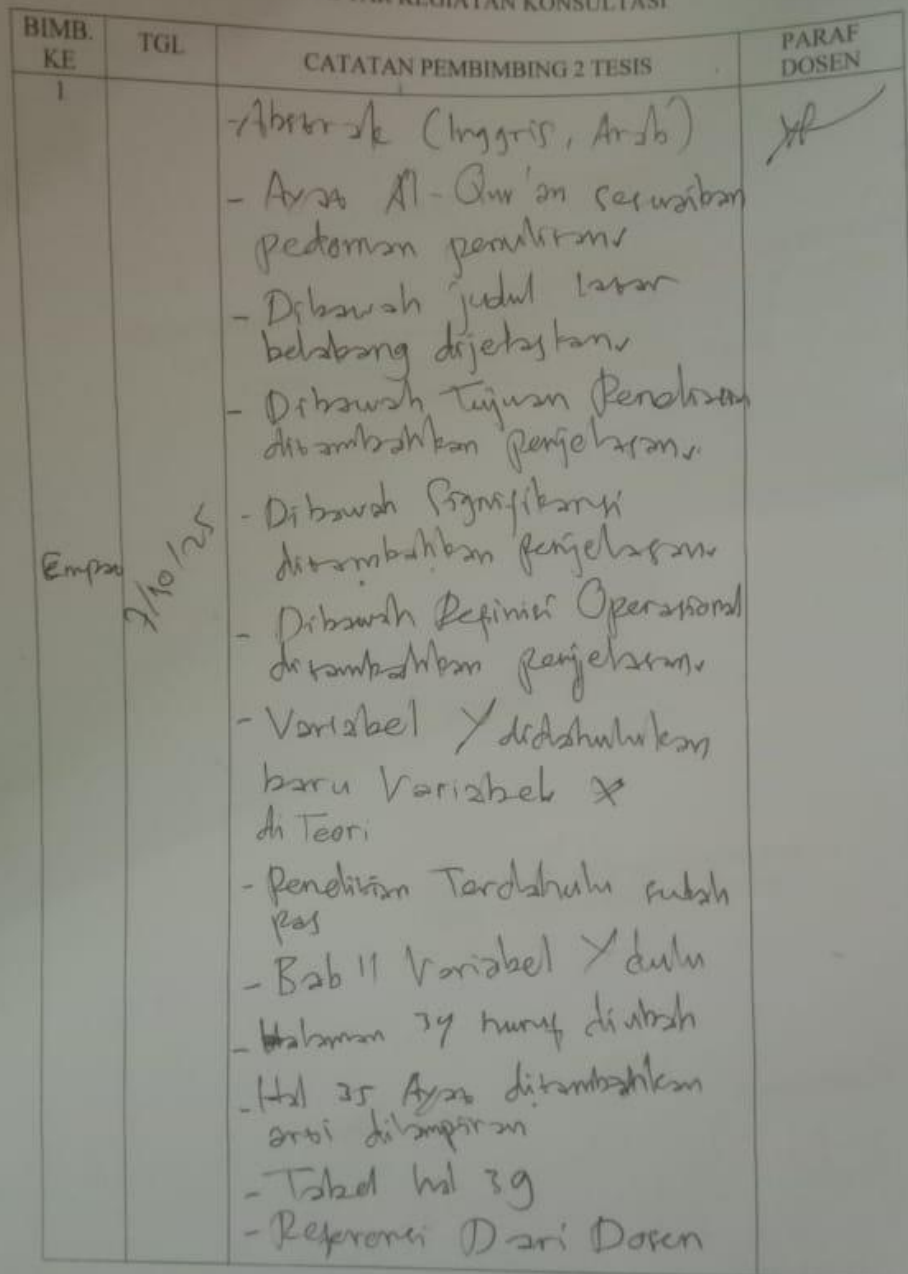 KEGIATAN KONSULTASI
BIMB. KE
TGL
CATATAN PEMBIMBING 2 TESIS
PARAF DOSEN
1
Empat
7/10/25
- Abstrak (Inggris, Arab)
- Ayat Al-Qur'an sesuaikan
pedoman penulisan
- Dibawah judul latar
belakang dijelaskan
- Dibawah Tujuan Penelitian
ditambahkan penjelasan
- Dibawah Signifikansi
ditambahkan penjelasan
- Dibawah Definisi Operasional
ditambahkan penjelasan
- Variabel Y didahulukan
baru Variabel X
di Teori
- Penelitian Terdahulu sudah
pas
- Bab II Variabel Y dulu
- Halaman 34 huruf diubah
- Hal 35 Ayat ditambahkan
arti dilampiran
- Tabel hal 39
- Referensi Dari Dosen